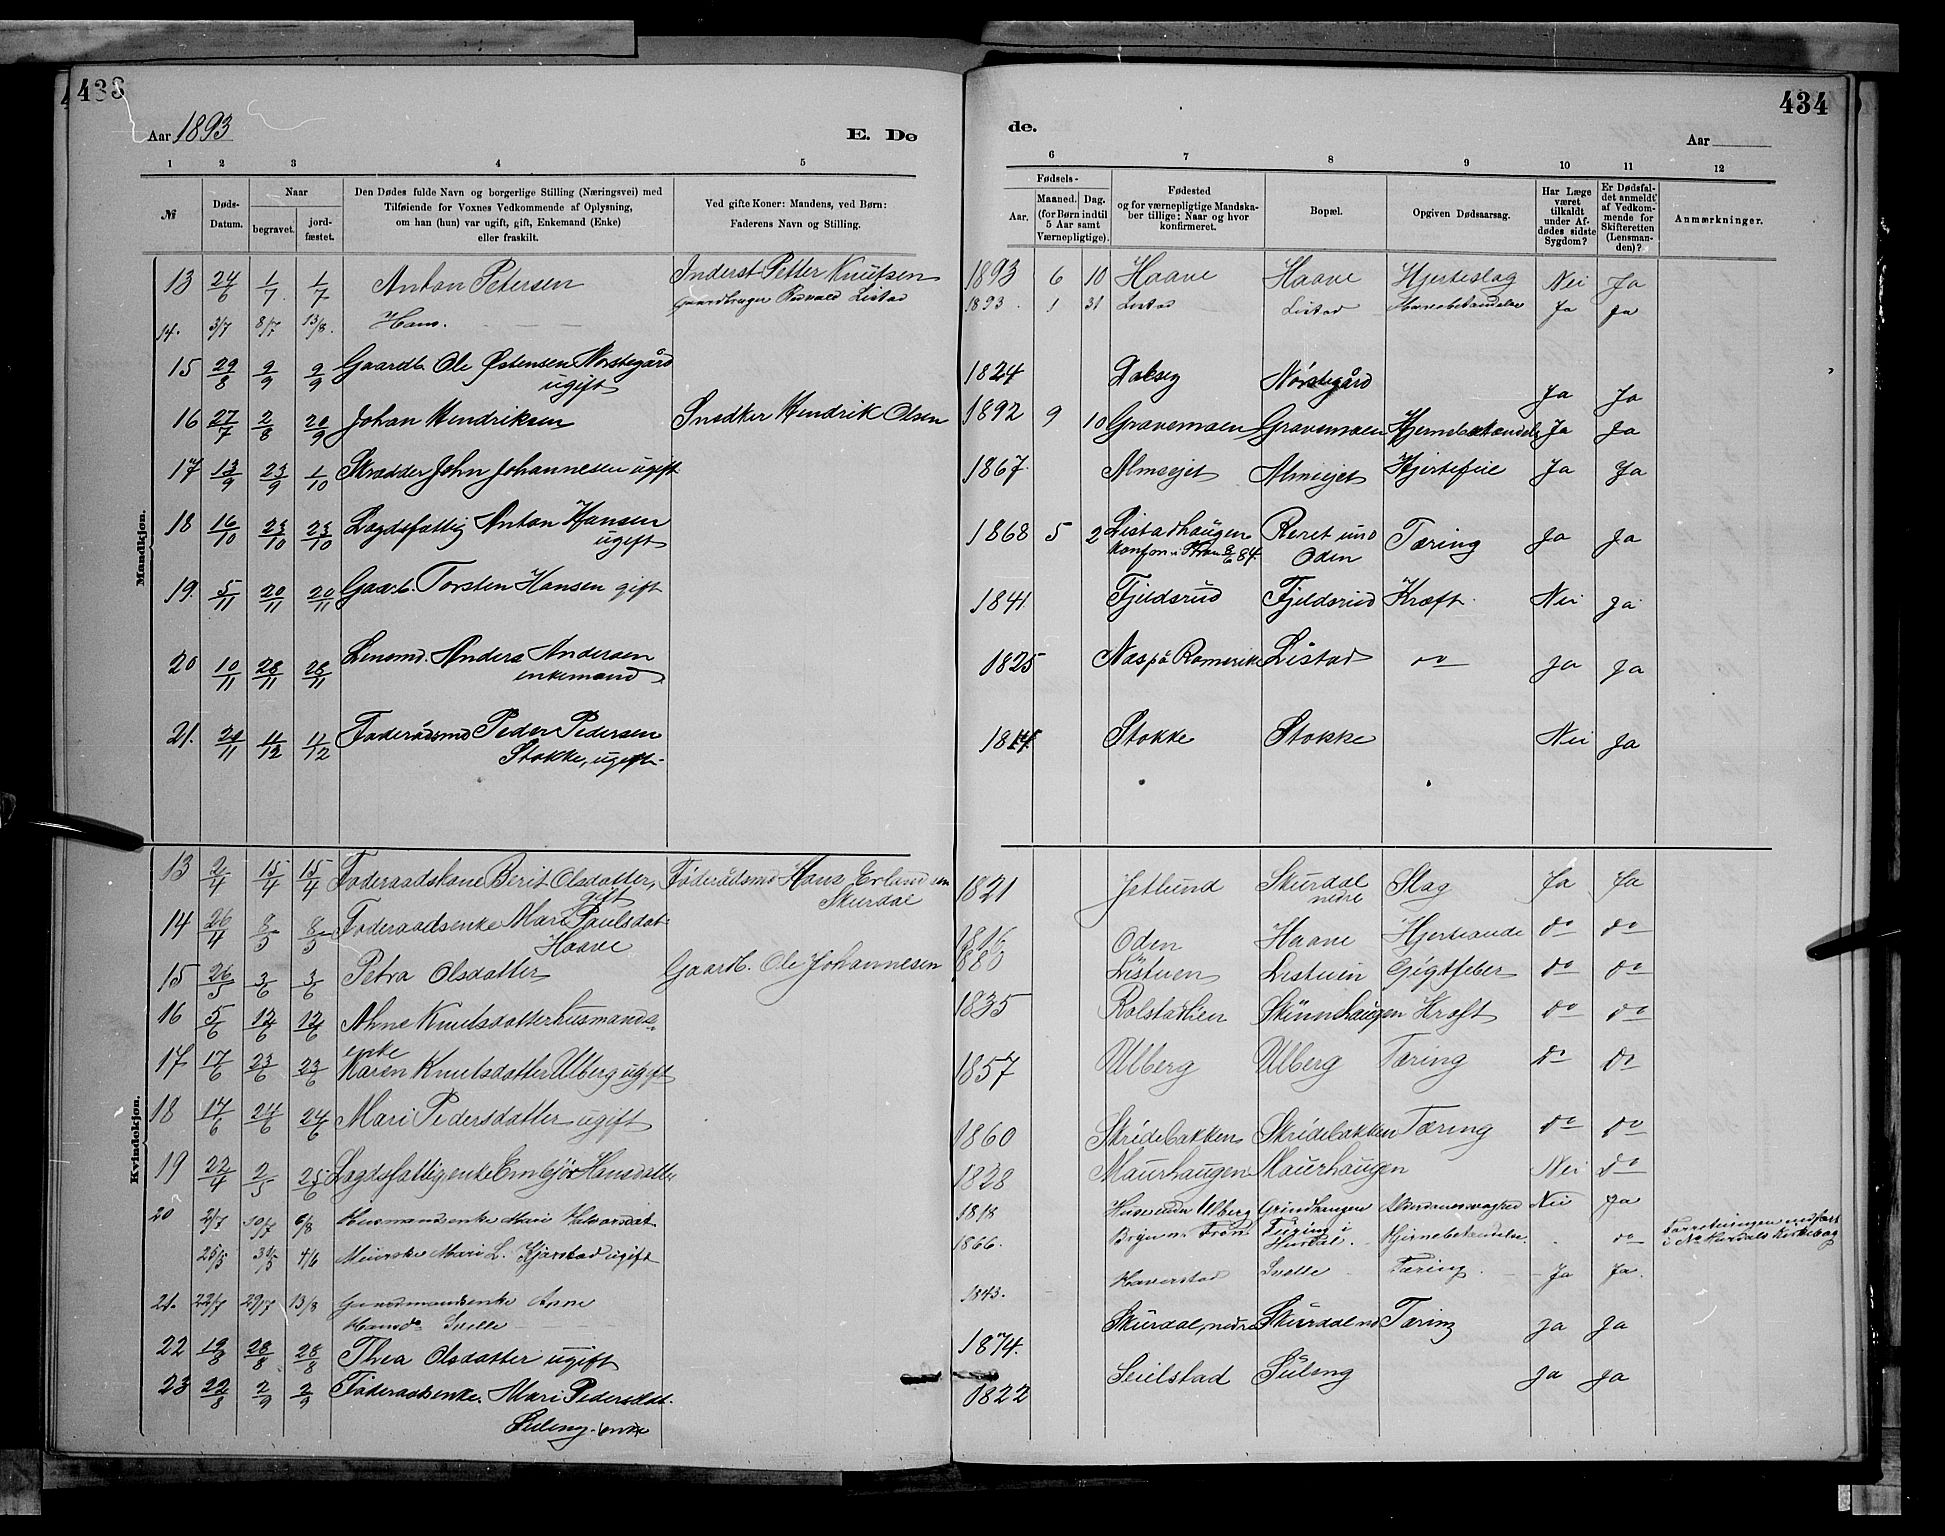 433
Aar 1893
E. Dø
1 2 3 4 5
№
Døds-
Datum.
Naar
begravet.
jord-
fæstet.
Den Dødes fulde Navn og borgerlige Stilling (Næringsvei) med
Tilføiende for Voxnes Vedkommende af Oplysning,
om han (hun) var ugift, gift, Enkemand (Enke)
eller fraskilt.
Ved gifte Koner: Mandens, ved Børn:
Faderens Navn og Stilling.
Mandkjøn.
13 24/6 1/7 1/7 Anton Petersen Inderst Petter Knutsen
14. 3/7 8/7 13/8. Hans. gaardbruger Listad
15 29/8 9/9 9/9 Gaardb. Ole Østensen Nørstegård
ugift
16 27/7 2/8 20/9 Johan Hendriksen Snedker Hendrik Olsen
17 13/9 23/9 1/10 Skrædder John Johannesen ugift
18 16/10 23/10 23/10 Lægdsfattig Anton Hansen
ugift
19. 5/11 20/11 20/11 Gaarb. Torsten Hansen gift
20 10/11 28/11 28/11 Lensmd. Anders Andersen
enkemand
21. 24/11 11/12 11/12 Føderådsmd Peder Pedersen
Stokke, ugift
Kvindekjøn.
13 2/4 15/4 15/4 Føderaadskone Berit Olsdatter, Føderådsmd Hans Erlandsen
gift Skurdal
14 26/4 8/5 8/5 Føderaadsenke Mari Paulsdat
Haave
15 26/5 3/6 3/6 Petra Olsdatter Gaardb. Ole Johannesen
16 5/6 12/6 12/6 Ahne Knutsdatter husmands-
enke
17 17/6 23/6 23/6 Karen Knutsdatter Ulberg ugift
18 17/6 24/6 24/6 Mari Pedersdatter ugift
19 22/4 2/5 25/6 Lægdsfattig enke Embjør Hansdatter
20 2/7 10/7 6/8 Husmandsenke Mari Halvorsdat
25/5 4/6 Meierske Mari L. Kjørstad ugift
21. 22/7 29/7 13/8 Gaardmandsenke Anne
Hansda Svelle
22 19/8 28/8 28/8 Thea Olsdatter ugift
23 22/8 2/9 2/9 Føderaadsenke. Mari Pedersdat.
Suleng enke
434
de.
Aar
6 7 8 9 10 11 12
Fødsels-
Aar.
Maaned. Dag.
(for Børn indtil
5 Aar samt
Værnepligtige).
Fødested
og for værnepligtige Mandska-
ber tillige: Naar og hvor
konfirmeret.
Bopæl.
Opgiven Dødsaarsag.
Har Læge
været
tilkaldt
under Af-
dødes sidste
Sygdom?
Er Dødsfal-
det anmeldt
af Vedkom-
mende for
Skifteretten
(Lensman-
den)?
Anmærkninger.
1893 6 10 Haave Haave Hjerteslag Nei Ja
1893. 1 31 Listad Listad Ja Ja
1824 Nørstegård Ja Ja
1892 9 10 Gravemoen Gravemoen Hjernebetændels Ja Ja
1867 Almsejet Almsejet Hjertefeil Ja Ja
1868 5 2 Listadhaugen Røret und Tæring Ja Ja
84 Oden
1841 Fjeldsrud Fjeldsrud Kræft. Nei Ja
1825 Næs på Romerike Listad do Ja Ja
1814 Stokke Stokke Nei Ja
1821 Jetlund Skurdal Slag Ja Ja
nedre
1816 Oden Haave do do
1880 Listuen Listuen Gigtfeber do do
1835 Rolstadlien Skinnhaugen Kræft do do
1857 Ulberg Ulberg Tæring do do
1860 Skridebakken Skridebakken Tæring do do
1828 Maurhaugen Maurhaugen Nei do
1818 Huse under Ulberg Grindhaugen Nei Ja
1866. Hjernebetændelse. do
1843. Haverstad Svelle Tæring. Ja Ja.
1874. Skurdal, nedre Skurdal nd Tæring Ja Ja
1822 Seilstad Suleng Ja Ja